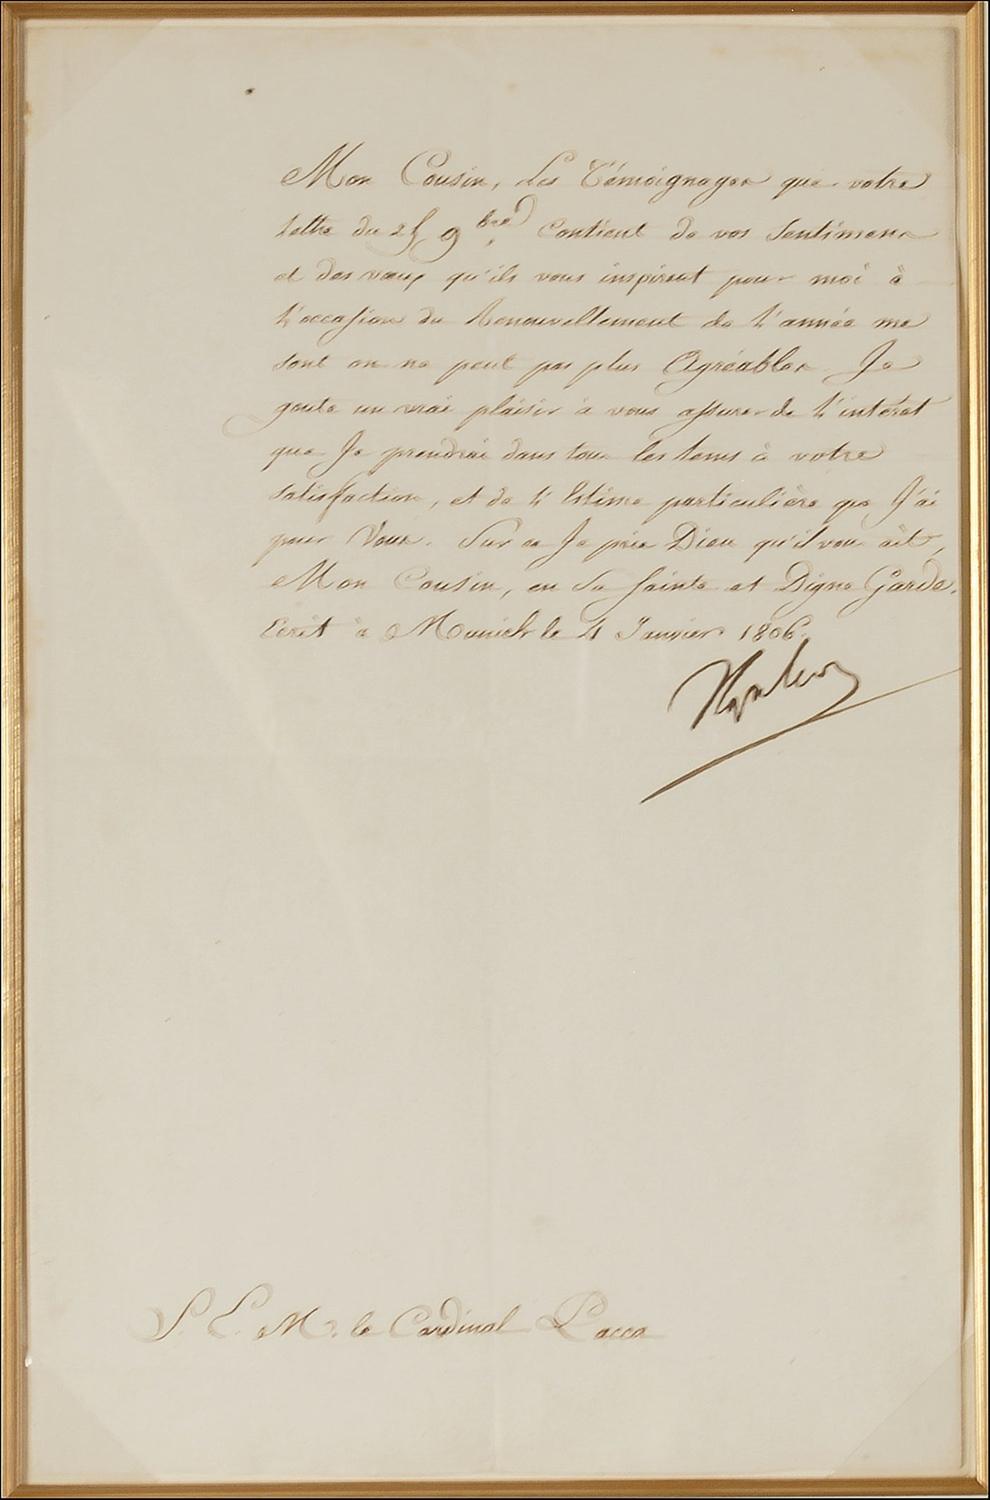 Mon Cousin, Les Témoignages que votre
Lettre du 25 9bre contient de vos Sentimens
et des vœux qu'ils vous inspirent pour moi à
L'occasion du Renouvellement de L'année me
sont on ne peut pas plus Agréables. Je
goute un vrai plaisir à vous assurer de L'interet
que Je prendrai dans tous les tems à votre
satisfaction, et de L'Estime particulière que J'ai
pour Vous. Sur ce Je prie Dieu qu'il vous ait,
Mon Cousin, en Sa Sainte et Digne Garde.
Ecrit à Munich le 4 Janvier 1806.
Napoleon
S. E. M. le Cardinal Pacca